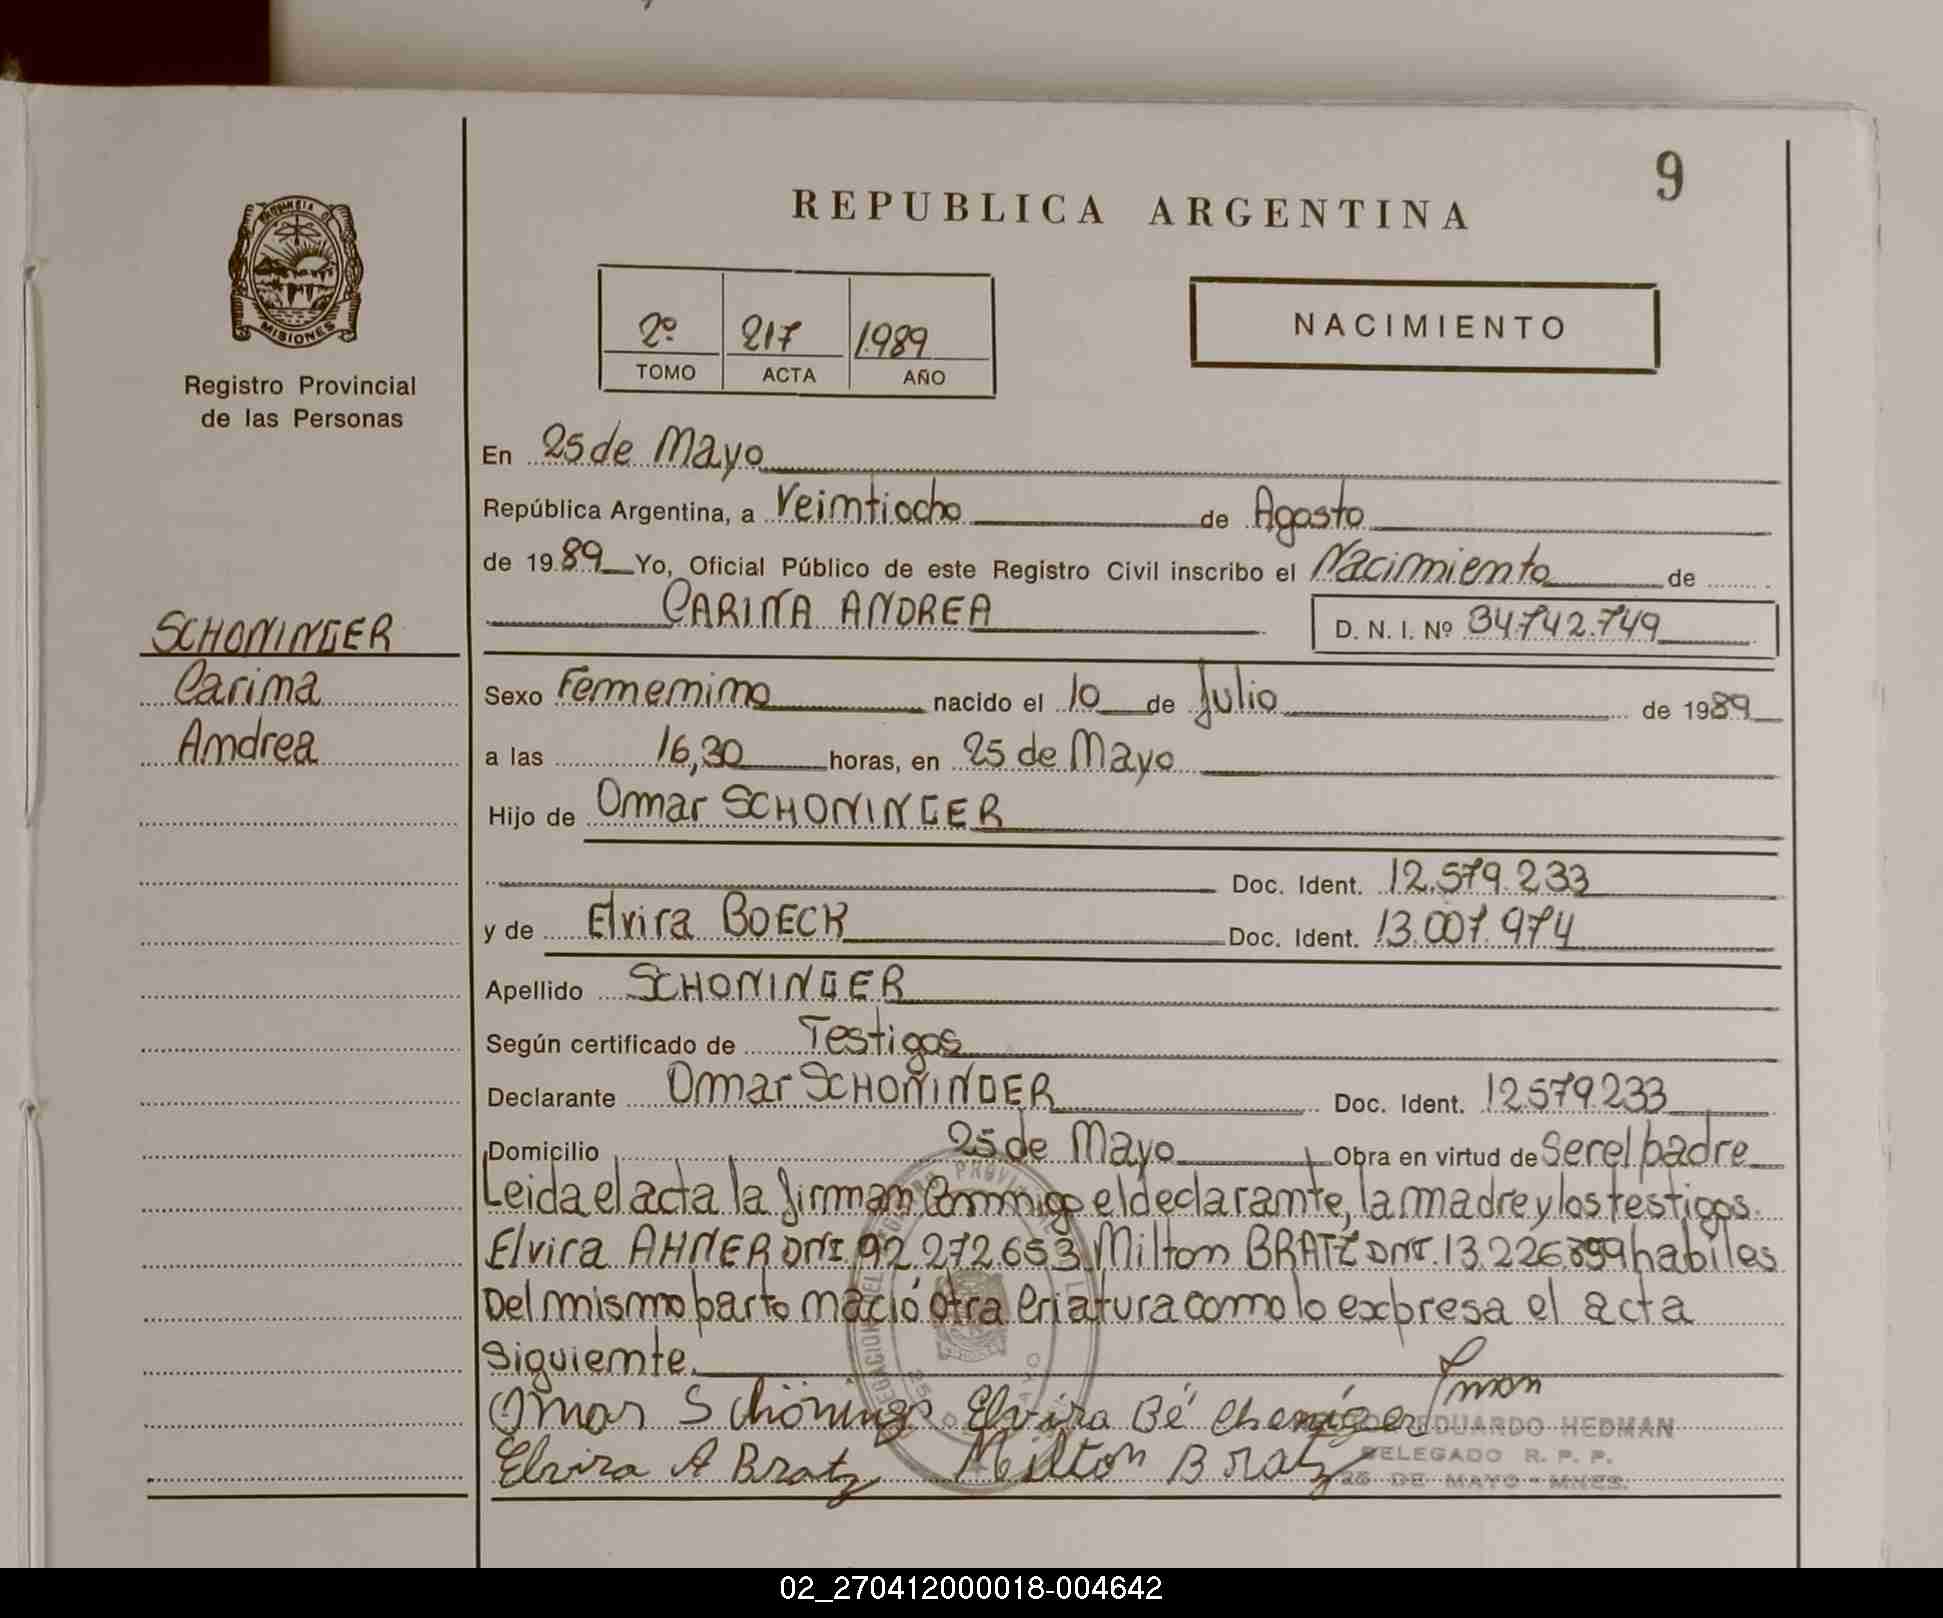 9
REPUBLICA ARGENTINA
PROVINCIA DE
MISIONES
Registro Provincial
de las Personas
2º 217 1989
TOMO ACTA AÑO
NACIMIENTO
En 25 de Mayo
República Argentina, a Veintiocho de Agosto
de 1989 Yo, Oficial Público de este Registro Civil inscribo el Nacimiento de
CARINA ANDREA D. N. I. Nº 34.742.749
SCHONINGER
Carina
Andrea
Sexo Femenino nacido el 10 de Julio de 1989
a las 16,30 horas, en 25 de Mayo
Hijo de Omar SCHONINGER
Doc. Ident. 12.579.233
y de Elvira BOECK Doc. Ident. 13.007.974
Apellido SCHONINGER
Según certificado de Testigos
Declarante Omar SCHONINGER Doc. Ident. 12.579.233
Domicilio 25 de Mayo Obra en virtud de Ser el padre
Leida el acta la firman Conmigo el declarante, la madre y los testigos.
Elvira AHNER DNI. 92.272.653 Milton BRATZ DNI. 13.226.899 habiles
Del mismo parto nació otra Criatura como lo expresa el acta
siguiente.
Omar Schöninger Elvira Bé
Elvira A Bratz Milton Bratz
EDUARDO HEDMAN
DELEGADO R. P. P.
25 DE MAYO - MNES.
02_270412000018-004642